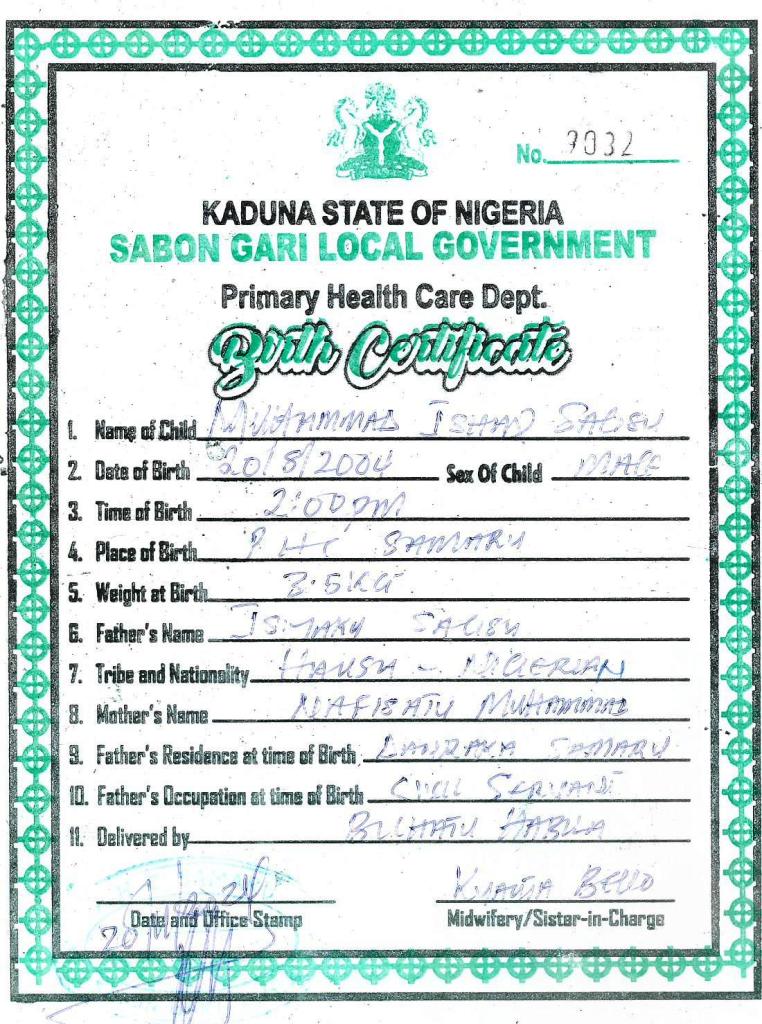 No. 9032
KADUNA STATE OF NIGERIA
SABON GARI LOCAL GOVERNMENT
Primary Health Care Dept.
Birth Certificate
1. Name of Child MUHAMMAD ISHAQ SALISU
2. Date of Birth 20/8/2004 Sex Of Child MALE
3. Time of Birth 2:00pm
4. Place of Birth PHC SAMARU
5. Weight at Birth 3.5KG
6. Father's Name SALISU
7. Tribe and Nationality HAUSA - NIGERIAN
8. Mother's Name NAFISATU MUHAMMAD
9. Father's Residence at time of Birth SAMARU
10. Father's Occupation at time of Birth CIVIL SERVANT
11. Delivered by HABILA
BELLO
Date and Office Stamp Midwifery/Sister-in-Charge